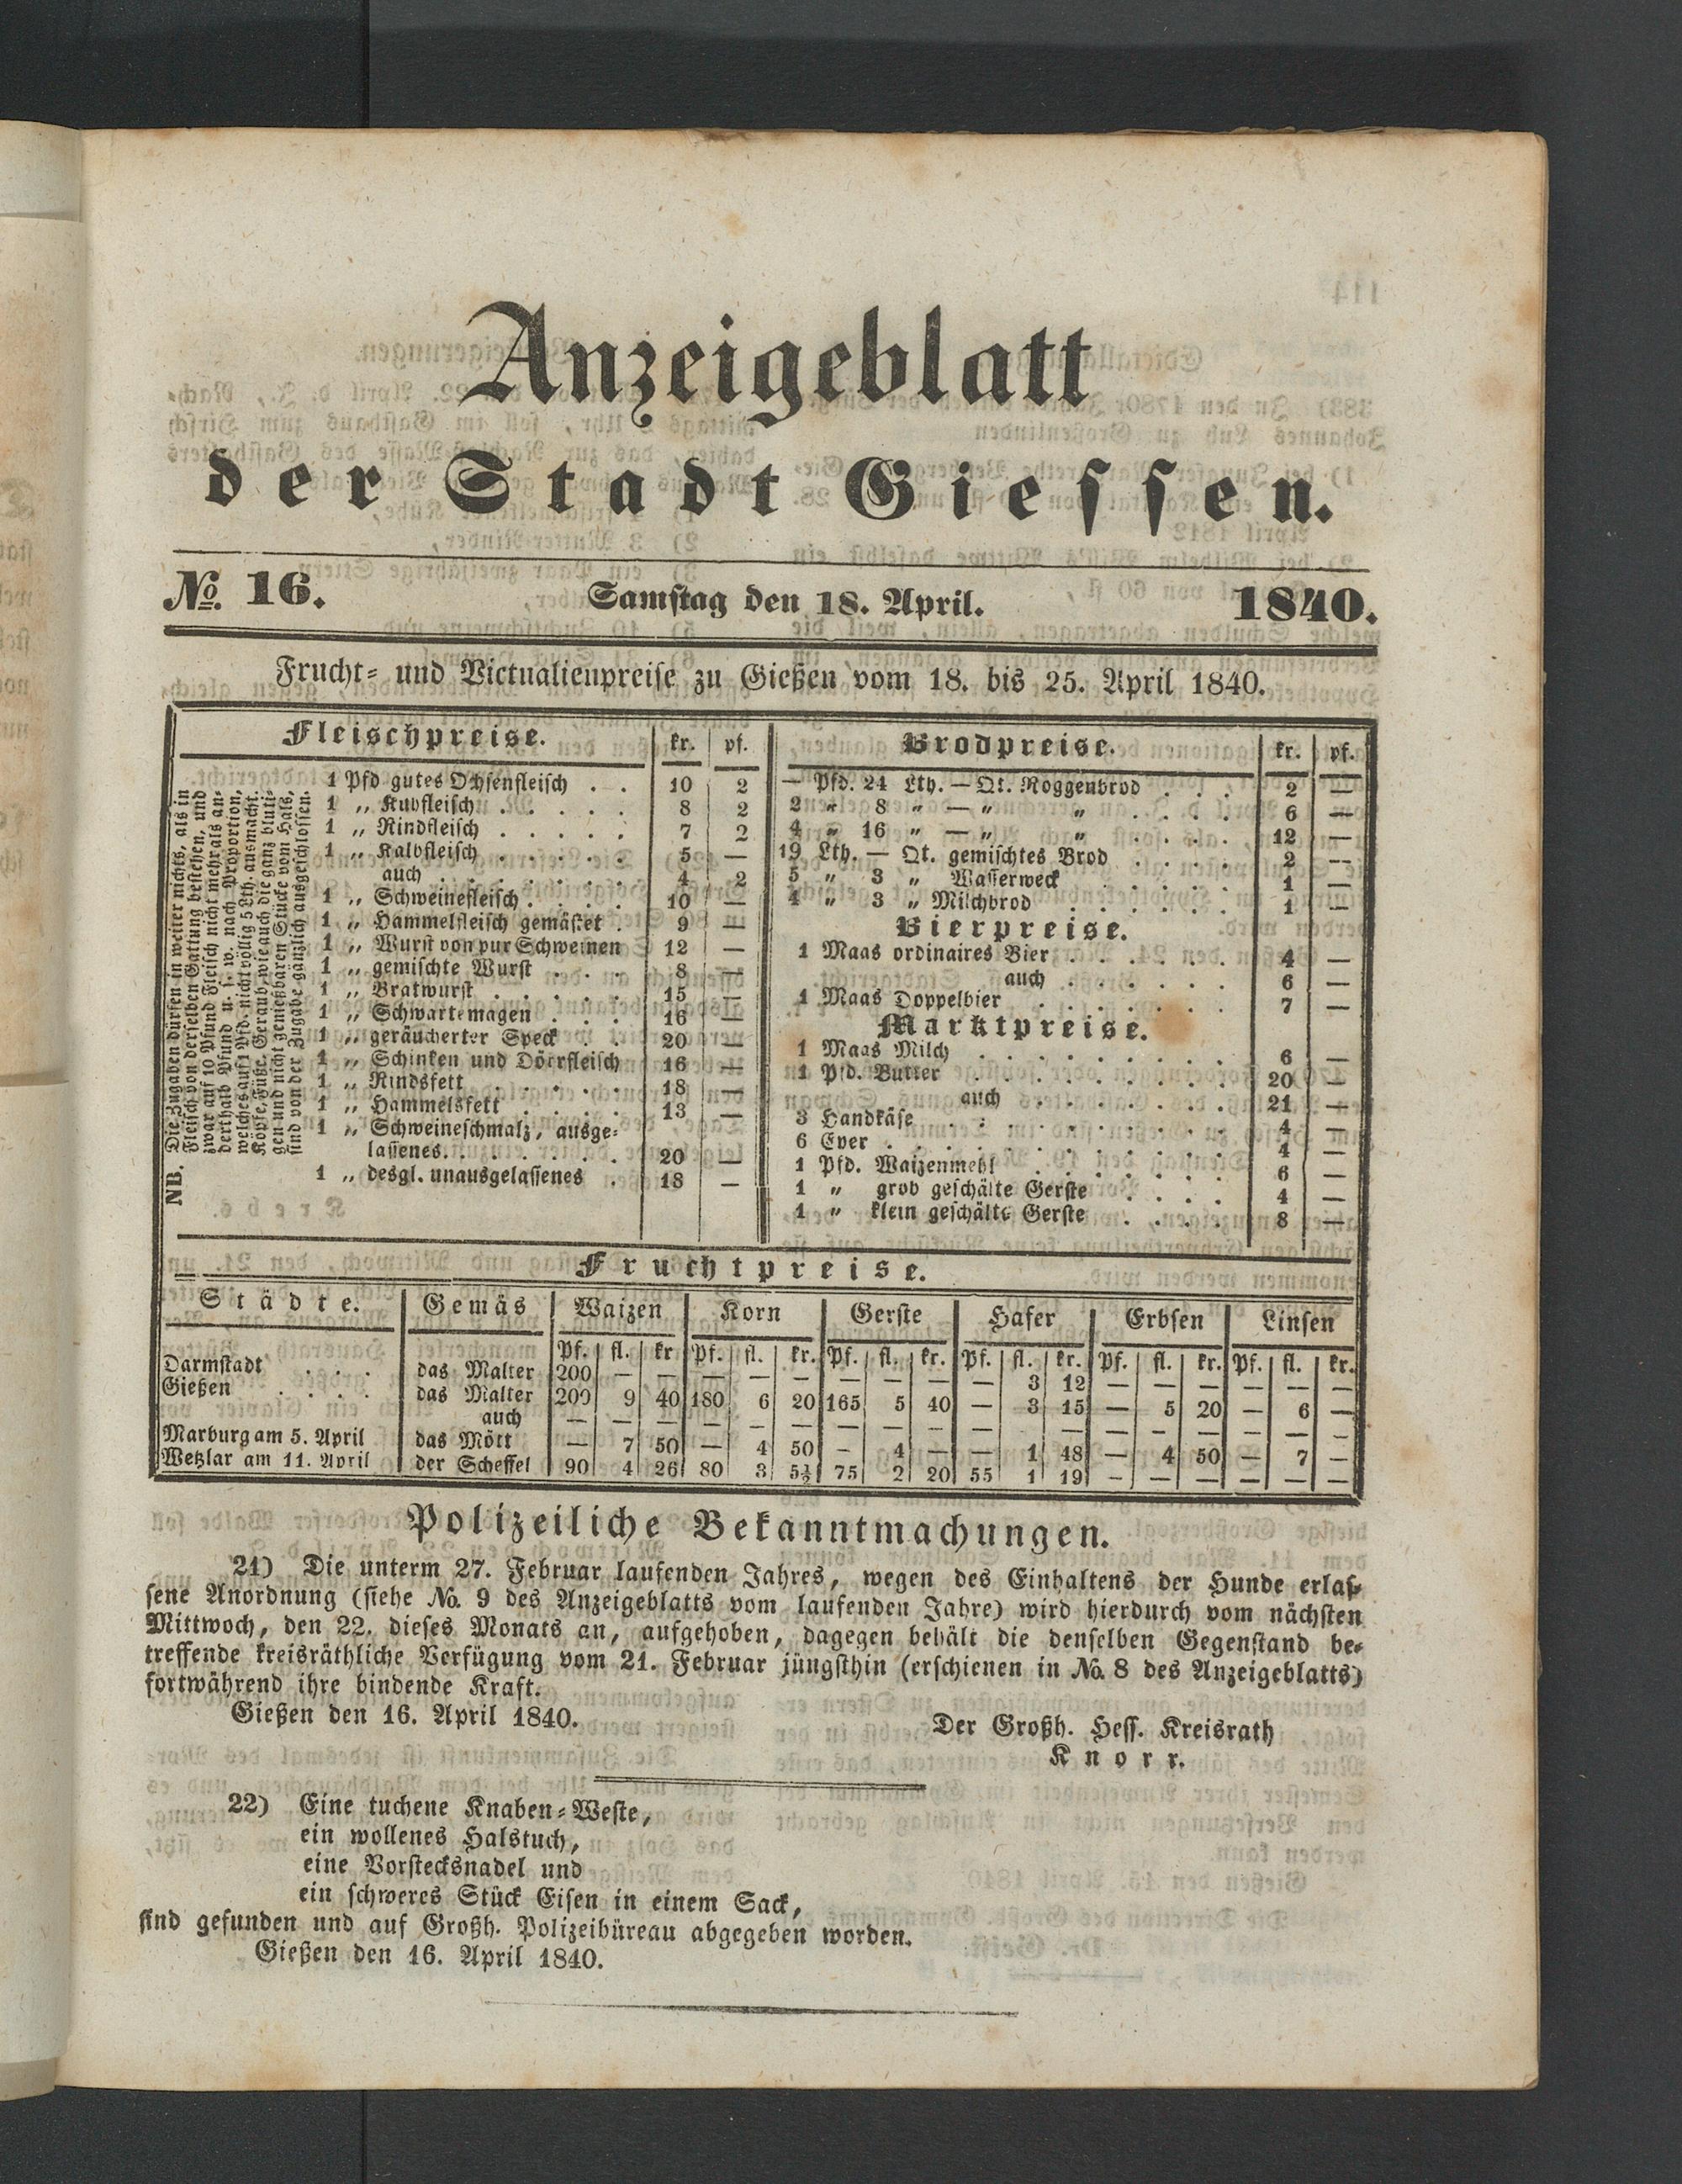 Anzeigeblatt
der Stadt Giessen.
No. 16. Samstag den 18. April. 1840.
Frucht- und Victualienpreise zu Gießen vom 18. bis 25. April 1840.
Fleischpreise. kr. pf.
NB. Die Zugaben dürfen in weiter nichts, als in
Fleisch von derselben Gattung bestehen, und
zwar auf 10 Pfund Fleisch nicht mehr als an-
derthalb Pfund u. s. w. nach Proportion,
welches auf 1 Pfd. nicht völlig 5 Lth. ausmacht.
Köpfe, Füße, Geraub, wie auch die ganz bluti-
gen und nicht genießbaren Stücke vom Hals,
sind von der Zugabe gänzlich ausgeschlossen.
1 Pfd gutes Ochsenfleisch . . 10 2
1 „ Kuhfleisch . . . . . 8 2
1 „ Rindfleisch . . . . . 7 2
1 „ Kalbfleisch . . . . . 5 —
auch . . . . . . . 4 2
1 „ Schweinefleisch . . . . 10 —
1 „ Hammelfleisch gemästet . 9 —
1 „ Wurst von pur Schweinen 12 —
1 „ gemischte Wurst . . . 8 —
1 „ Bratwurst . . . . . 15 —
1 „ Schwartemagen . . . 16 —
1 „ geräucherter Speck . . 20 —
1 „ Schinken und Dörrfleisch 16 —
1 „ Rindsfett . . . . . 18 —
1 „ Hammelsfett . . . . 13 —
1 „ Schweineschmalz, ausge-
lassenes. . . . . . . 20 —
1 „ desgl. unausgelassenes . 18 —
Brodpreise. kr. pf.
— Pfd. 24 Lth. — Qt. Roggenbrod . . . 2 —
2 „ 8 „ — „ „ . . . . 6 —
4 „ 16 „ — „ „ . . . . 12 —
19 Lth. — Qt. gemischtes Brod . . . . 2 —
5 „ 3 „ Wasserweck . . . . . 1 —
4 „ 3 „ Milchbrod . . . . . . 1 —
Bierpreise.
1 Maas ordinaires Bier . . . . . . 4 —
auch . . . . . . 6 —
1 Maas Doppelbier . . . . . . . 7 —
Marktpreise.
1 Maas Milch . . . . . . . . . 6 —
1 Pfd. Butter . . . . . . . . . 20 —
auch . . . . . . . 21 —
3 Handkäse . . . . . . . . . 4 —
6 Eyer . . . . . . . . . . . 4 —
1 Pfd. Waizenmehl . . . . . . . 6 —
1 „ grob geschälte Gerste . . . . 4 —
1 „ klein geschälte Gerste . . . . 8 —
Fruchtpreise.
Städte. Gemäs Waizen Korn Gerste Hafer Erbsen Linsen
Pf. fl. kr Pf. fl. kr. Pf. fl. kr. Pf. fl. kr. Pf. fl. kr. Pf. fl. kr.
Darmstadt . . . das Malter 200 — — — — — — — — — 3 12 — — — — — —
Gießen . . . . das Malter 200 9 40 180 6 20 165 5 40 — 3 15 — 5 20 — 6 —
auch — — — — — — — — — — — — — — — — — —
Marburg am 5. April das Mött — 7 50 — 4 50 — 4 — — 1 48 — 4 50 — 7 —
Wetzlar am 11. April der Scheffel 90 4 26 80 3 5½ 75 2 20 55 1 19 — — — — — —
Polizeiliche Bekanntmachungen.
21) Die unterm 27. Februar laufenden Jahres, wegen des Einhaltens der Hunde erlas-
sene Anordnung (siehe No. 9 des Anzeigeblatts vom laufenden Jahre) wird hierdurch vom nächsten
Mittwoch, den 22. dieses Monats an, aufgehoben, dagegen behält die denselben Gegenstand be-
treffende kreisräthliche Verfügung vom 21. Februar jüngsthin (erschienen in No. 8 des Anzeigeblatts)
fortwährend ihre bindende Kraft.
Gießen den 16. April 1840.
Der Großh. Hess. Kreisrath
Knorr.
22) Eine tuchene Knaben-Weste,
ein wollenes Halstuch,
eine Vorstecksnadel und
ein schweres Stück Eisen in einem Sack,
sind gefunden und auf Großh. Polizeibüreau abgegeben worden.
Gießen den 16. April 1840.